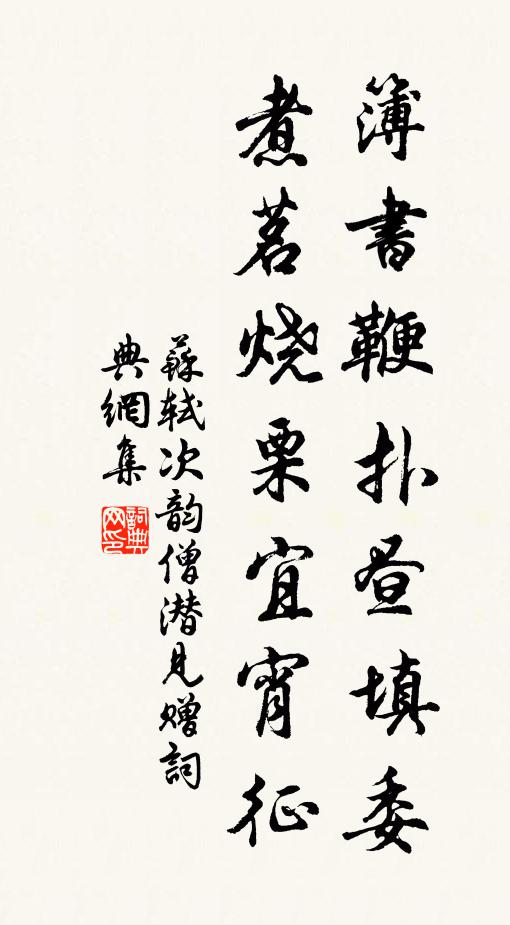 簿書鞭扑昼填委
煮茗烧栗宜宵征
蘇軾次韵僧潜見赠詞
典網集
詞典网印